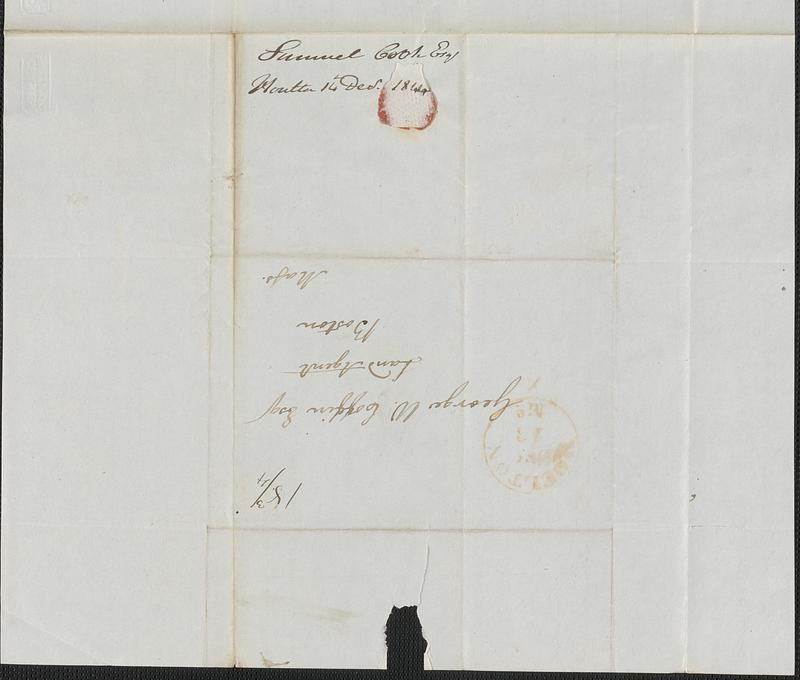 Samuel Cook Esq
Houlton 14 Decr. 1844
George W. Coffin Esq
Land Agent
Boston
Mass.
18 3/4
HOULTON
Me